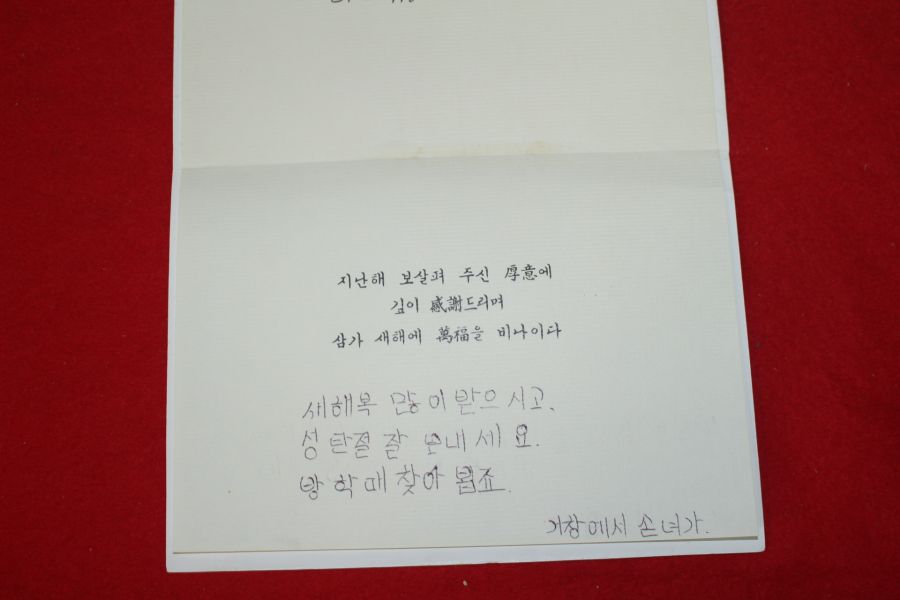 지난해 보살펴 주신 厚意에
깊이 感謝드리며
삼가 새해에 萬福을 비나이다
새해복 많이 받으시고.
성탄절 잘 보내세요.
방학때 찾아 뵙죠.
거창에서 손녀가.